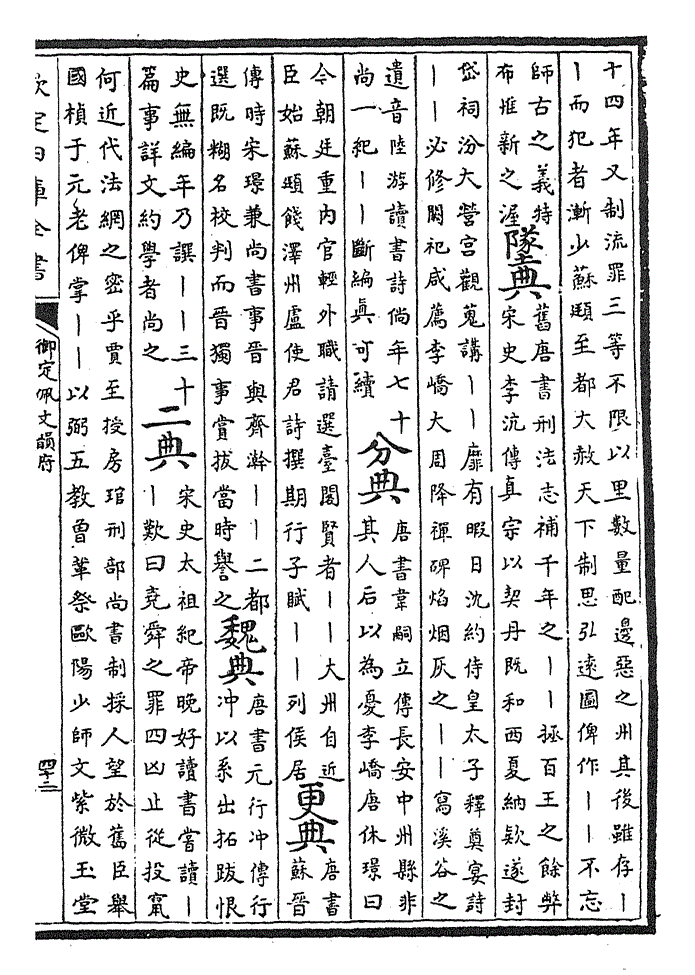 十四年又制流罪三等不限以里數量配邊惡之州其後雖存丨
丨而犯者漸少蘇頲至都大赦天下制思弘逺圖俾作丨丨不忘
師古之義特
布惟新之渥
墜典
舊唐書刑法志補千年之丨丨拯百王之餘弊
宋史李沆傳真宗以契丹既和西夏納欵遂封
岱祠汾大營宫觀蒐講丨丨靡有暇日沈約侍皇太子釋奠宴詩
丨丨必修闕祀咸薦李嶠大周降禪碑焰烟灰之丨丨寫溪谷之
遺音陸游讀書詩倘年七十
尚一紀丨丨斷編真可續
分典
唐書韋嗣立傳長安中州縣非
其人后以為憂李嶠唐休璟曰
今朝廷重内官輕外職請選臺閣賢者丨丨大州自近
臣始蘇頲餞澤州盧使君詩撰期行子賦丨丨列侯居
更典
唐書
蘇晉
傳時宋璟兼尚書事晉與齊澣丨丨二都
選既糊名校判而晉獨事賞拔當時譽之
魏典
唐書元行冲傳行
冲以系出拓跋恨
史無編年乃譔丨丨三十
篇事詳文約學者尚之
二典
宋史太祖紀帝晚好讀書嘗讀丨
丨歎曰堯舜之罪四凶止從投竄
何近代法網之密乎賈至授房琯刑部尚書制採人望於舊臣舉
國楨于元老俾掌丨丨以弼五教曾鞏祭歐陽少師文紫微玉堂
欽定四庫全書
御定佩文韻府
四十二